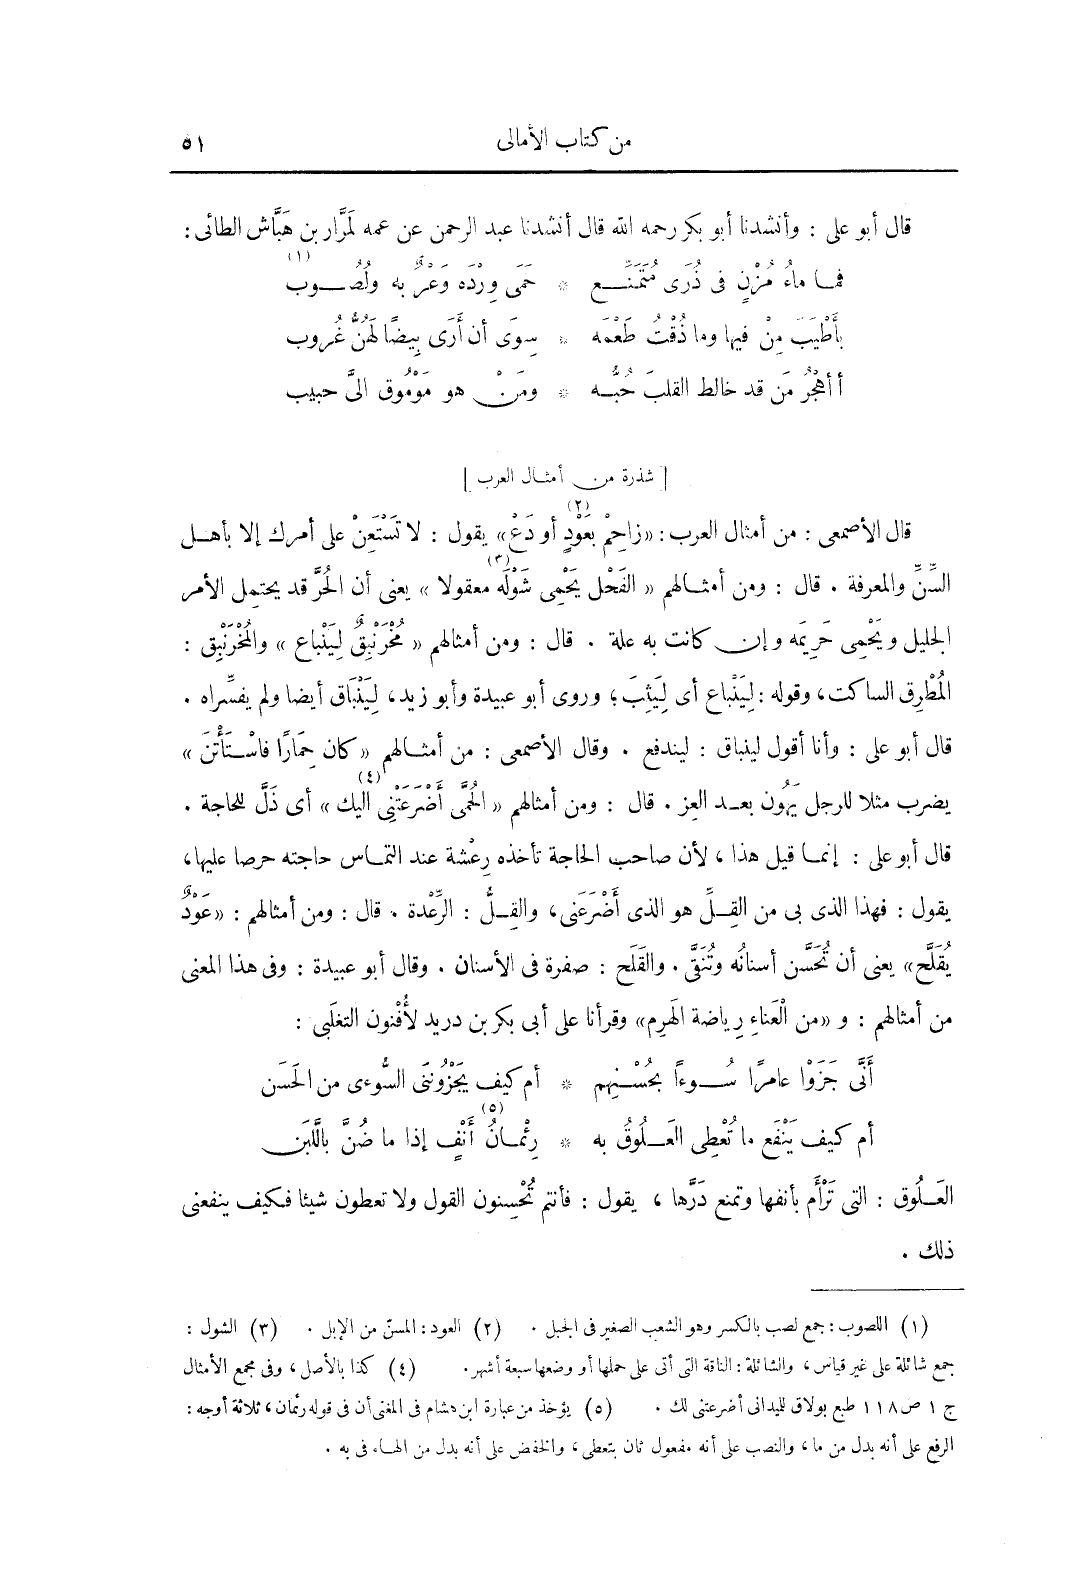 من كتاب الأمالى ٥١
قال أبو على : وأنشدنا أبو بكر رحمه الله قال أنشدنا عبد الرحمن عن عمه لمَرَّار بن هَبَّاش الطائى :
فمـا ماءُ مُزْنٍ فى ذُرَى مُتَمَنِّـع * حَمَى وِرْدَه وَعْرٌ به ولُصُـوب (١)
بأَطْيَبَ مِنْ فيها وما ذُقْتُ طَعْمَه * سِوَى أن أَرَى بِيضًا لَهُنَّ غُروب
أأهْجُرُ مَن قد خالط القلبَ حُبُّـه * ومَنْ هو مَوْمُوق الىَّ حبيب
[ شذرة من أمثال العرب ]
قال الأصمعى : من أمثال العرب : «زاحِمْ بعَوْدٍ أو دَعْ» (٢) يقول : لا تَسْتَعِنْ على أمرك إلا بأهـل
السِّنِّ والمعرفة . قال : ومن أمثـالهم « الفَحْل يَحْمِى شَوْلَه معقولا » (٣) يعنى أن الحُرَّ قد يحتمل الأمر
الجليل ويَحْمِى حَرِيمَه وإن كانت به علة . قال : ومن أمثالهم « مُخْرَنْبِقٌ لِيَنْباع » والمُخْرَنْبِق :
المُطْرِق الساكت، وقوله : لِيَنْباع أى لِيَثِبَ؛ وروى أبو عبيدة وأبو زيد، لِيَنْبَاق أيضا ولم يفسِّراه .
قال أبو على : وأنا أقول لينباق : ليندفع . وقال الأصمعى : من أمثـالهم «كان حِمَارًا فاسْـتَأْتَنَ »
يضرب مثلا للرجل يَهُون بعـد العز . قال : ومن أمثالهم « الحُمَّى أَضْرَعَتْنِى اليك » (٤) أى ذَلَّ للحاجة .
قال أبو على : إنمـا قيل هذا ، لأن صاحب الحاجة تأخذه رِعْشة عند التمـاس حاجته حرصا عليها،
يقول : فهذا الذى بى من القِـلِّ هو الذى أَضْرَعَنى، والقِـلُّ : الرِّعْدة . قال : ومن أمثالهم : «عَوْدٌ
يُقَلَّح» يعنى أن تُحَسَّن أسنانُه وتُنَقَّى . والقَلَح : صفرة فى الأسنان . وقال أبو عبيدة : وفى هذا المعنى
من أمثالهم : و «من الْعَناءِ رِياضة الهَرِم» وقرأنا على أبى بكر بن دريد لأُفْنون التغلَبى :
أَنَّى جَزَوْا عامرًا سُـوءاً بحُسْـنِهِم * أم كيف يَجْزُونَنى السُّوءى من الحَسَن
أم كيف يَنْفَع ما تُعْطِى العَـلُوقُ به * رِئْمـانُ (٥) أَنْفٍ إذا ما ضُنَّ باللَّبَن
العَـلُوق : التى تَرْأَم بأنفها وتمنع دَرَّها ، يقول : فأنتم تُحْسِنون القول ولا تعطون شيئا فكيف ينفعنى
ذلك .
(١) اللصوب : جمع لصب بالكسر وهو الشعب الصغير فى الجبل . (٢) العود : المسنّ من الإبل . (٣) الشول :
جمع شائلة على غير قياس، والشائلة : الناقة التى أتى على حملها أو وضعها سبعة أشهر. (٤) كذا بالأصل، وفى مجمع الأمثال
ج ١ ص ١١٨ طبع بولاق لليدانى أضرعتنى لك . (٥) يؤخذ من عبارة ابن هشام فى المغنى أن فى قوله رئمان، ثلاثة أوجه :
الرفع على أنه بدل من ما، والنصب على أنه مفعول ثان بتعطى، والخفض على أنه بدل من الهـاء فى به .